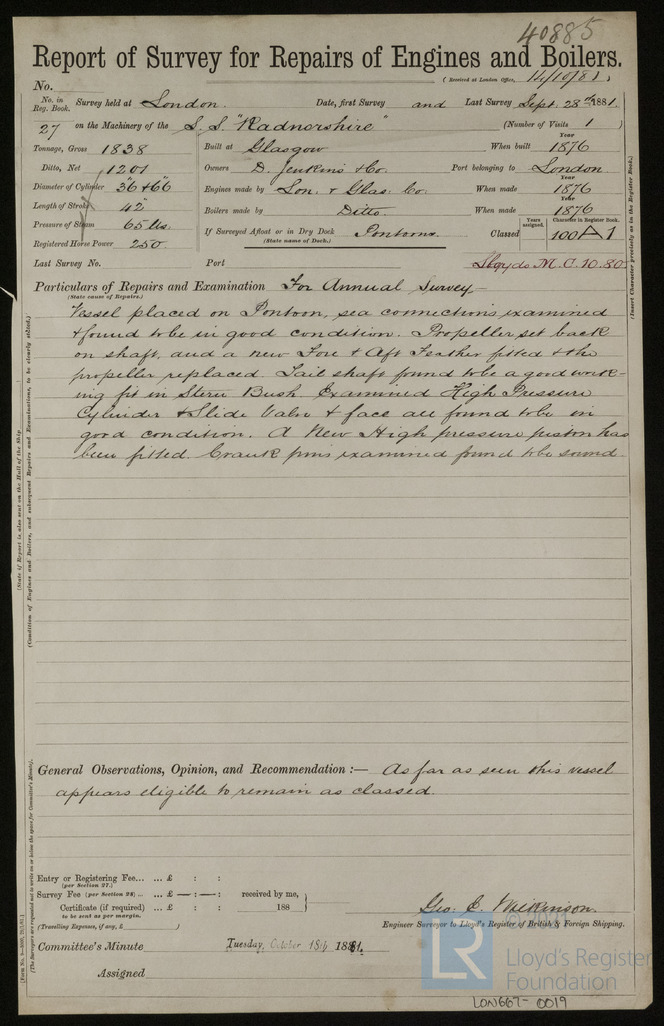 40885
Report of Survey for Repairs of Engines and Boilers.
(Received at London Office, 14/10/81)
No.
No. in Reg. Book. Survey held at London. Date, first Survey and Last Survey Sept. 28th 1881.
27 on the Machinery of the S.S. "Radnorshire" (Number of Visits 1)
Tonnage, Gross 1838 Built at Glasgow When built Year 1876
Ditto, Net 1201 Owners D. Jenkins & Co. Port belonging to London.
Diameter of Cylinder 36 & 66 Engines made by Lon. & Glas. Co. When made Year 1876
Length of Stroke 42" Boilers made by Ditto. When made Year 1876
Pressure of Steam 65 lbs. If Surveyed Afloat or in Dry Dock Pontoons. Classed Years assigned. Character in Register Book. 100A1
(State name of Dock.)
Registered Horse Power 250.
Last Survey No. Port Lloyds M.C. 10.80
Particulars of Repairs and Examination For Annual Survey
(State cause of Repairs.)
Vessel placed on Pontoon, sea connections examined
& found to be in good condition. Propeller set back
on shaft, and a new Fore & Aft Feather fitted & the
propeller replaced. Tail shaft found to be a good work-
ing fit in Stern Bush. Examined High Pressure
Cylinder & Slide Valve & face all found to be in
good condition. A New High pressure piston has
been fitted. Crank pins examined found to be sound.
General Observations, Opinion, and Recommendation :— As far as seen this vessel
appears eligible to remain as classed.
Entry or Registering Fee... ... £ : :
(per Section 27.)
Survey Fee (per Section 28) ... ... £ — : — : received by me,
Certificate (if required) ... £ : : 188
to be sent as per margin.
(Travelling Expenses, if any, £ )
Geo. C. Wilkinson.
Engineer Surveyor to Lloyd's Register of British & Foreign Shipping.
Committee's Minute Tuesday, October 18th 1881.
Assigned
(State if Report is also sent on the Hull of the Ship
(Condition of Engines and Boilers, and subsequent Repairs and Examinations, to be clearly stated.)
(Insert Character precisely as in the Register Book.)
(The Surveyors are requested not to write on or below the space for Committee's Minute).
LR
Lloyd's Register
Foundation
LON667-0019